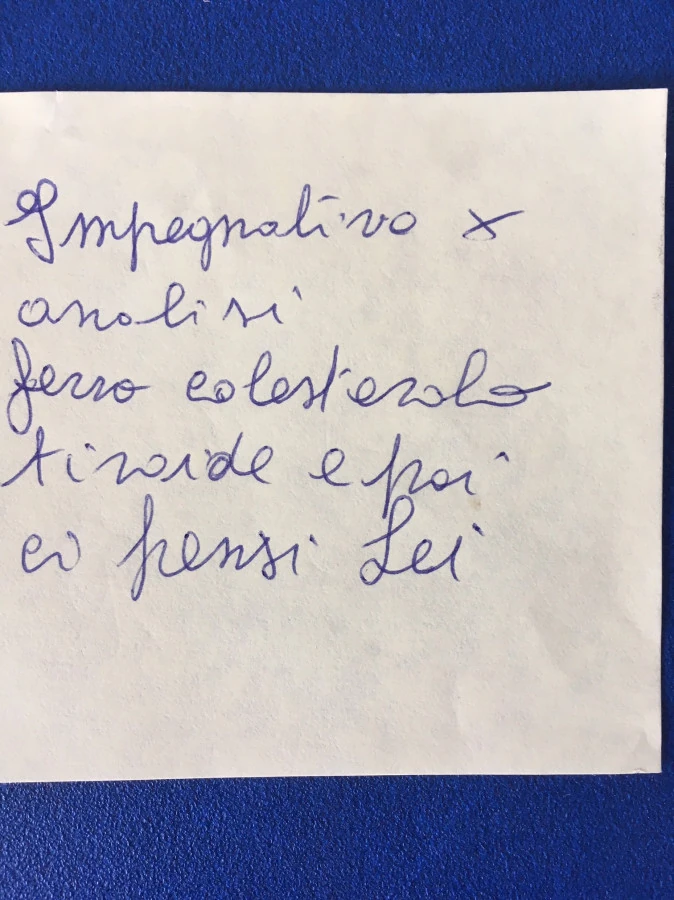 Impegnativa x
analisi
ferro colesterolo
tiroide e poi
ci pensi Lei